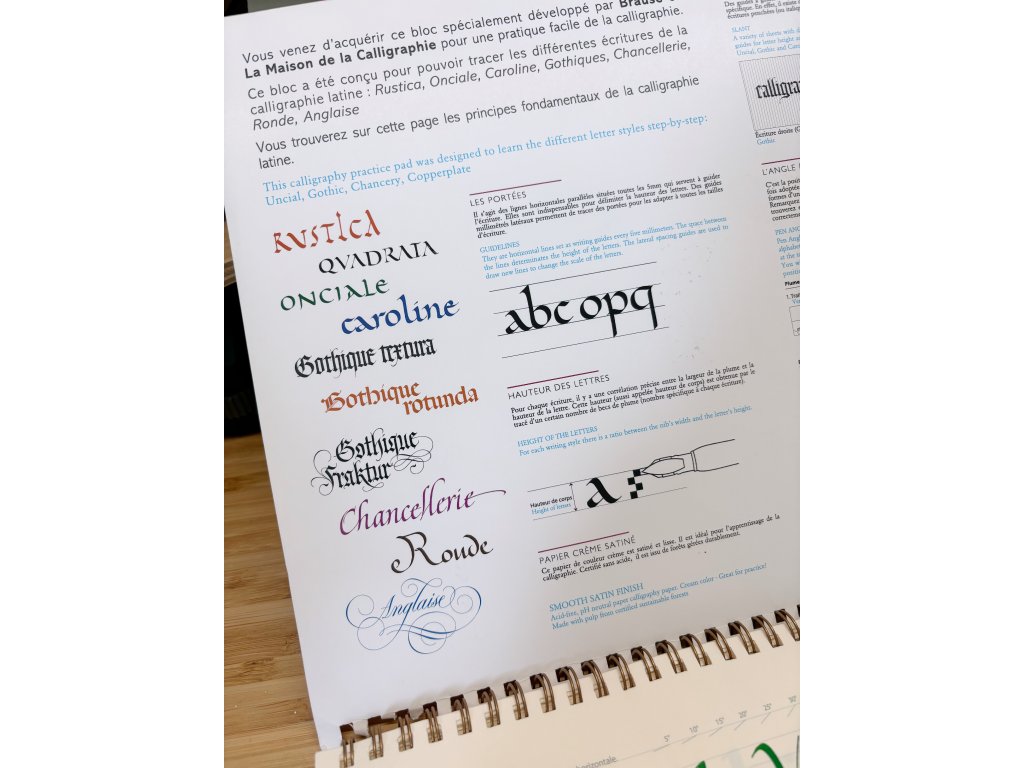 Vous venez d'acquérir ce bloc spécialement développé par Brause
La Maison de la Calligraphie pour une pratique facile de la calligraphie.
Ce bloc a été conçu pour pouvoir tracer les différentes écritures de la
calligraphie latine : Rustica, Onciale, Caroline, Gothiques, Chancellerie,
Ronde, Anglaise
Vous trouverez sur cette page les principes fondamentaux de la calligraphie
latine.
This calligraphy practice pad was designed to learn the different letter styles step-by-step:
Uncial, Gothic, Chancery, Copperplate
RUSTICA
QVADRATA
ONCIALE
caroline
Gothique textura
Gothique
rotunda
Gothique
Fraktur
Chancellerie
Ronde
Anglaise
LES PORTÉES
Il s'agit des lignes horizontales parallèles situées toutes les 5mm qui servent à guider
l'écriture. Elles sont indispensables pour délimiter la hauteur des lettres. Des guides
millimétrés latéraux permettent de tracer des portées pour les adapter à toutes les tailles
d'écriture.
GUIDELINES
They are horizontal lines set as writing guides every five millimeters. The space between
the lines determinates the height of the letters. The lateral spacing guides are used to
draw new lines to change the scale of the letters.
abc opq
HAUTEUR DES LETTRES
Pour chaque écriture, il y a une corrélation précise entre la largeur de la plume et la
hauteur de la lettre. Cette hauteur (aussi appelée hauteur de corps) est obtenue par le
tracé d'un certain nombre de becs de plume (nombre spécifique à chaque écriture).
HEIGHT OF THE LETTERS
For each writing style there is a ratio between the nib's width and the letter's height.
Hauteur de corps
Height of letters
a
PAPIER CRÈME SATINÉ
Ce papier de couleur crème est satiné et lisse. Il est idéal pour l'apprentissage de la
calligraphie. Certifié sans acide, il est issu de forêts gérées durablement.
SMOOTH SATIN FINISH
Acid-free, pH neutral paper calligraphy paper. Cream color - Great for practice!
Made with pulp from certified sustainable forests
spécifique. En effet, il existe
écritures penchées (ou italiq
SLANT
A variety of sheets with d
guides for letter height a
Uncial, Gothic and Car
calligra
Écriture droite (G
Gothic
L'ANGLE
C'est la posit
fois adoptée
formes d'un
Remarquez
trouverez
correcteme
PEN ANG
Pen Angl
alphabet
at the to
You w
positi
Plume
1. Trai
horizontale.
5° 10° 15° 20° 25° 30°